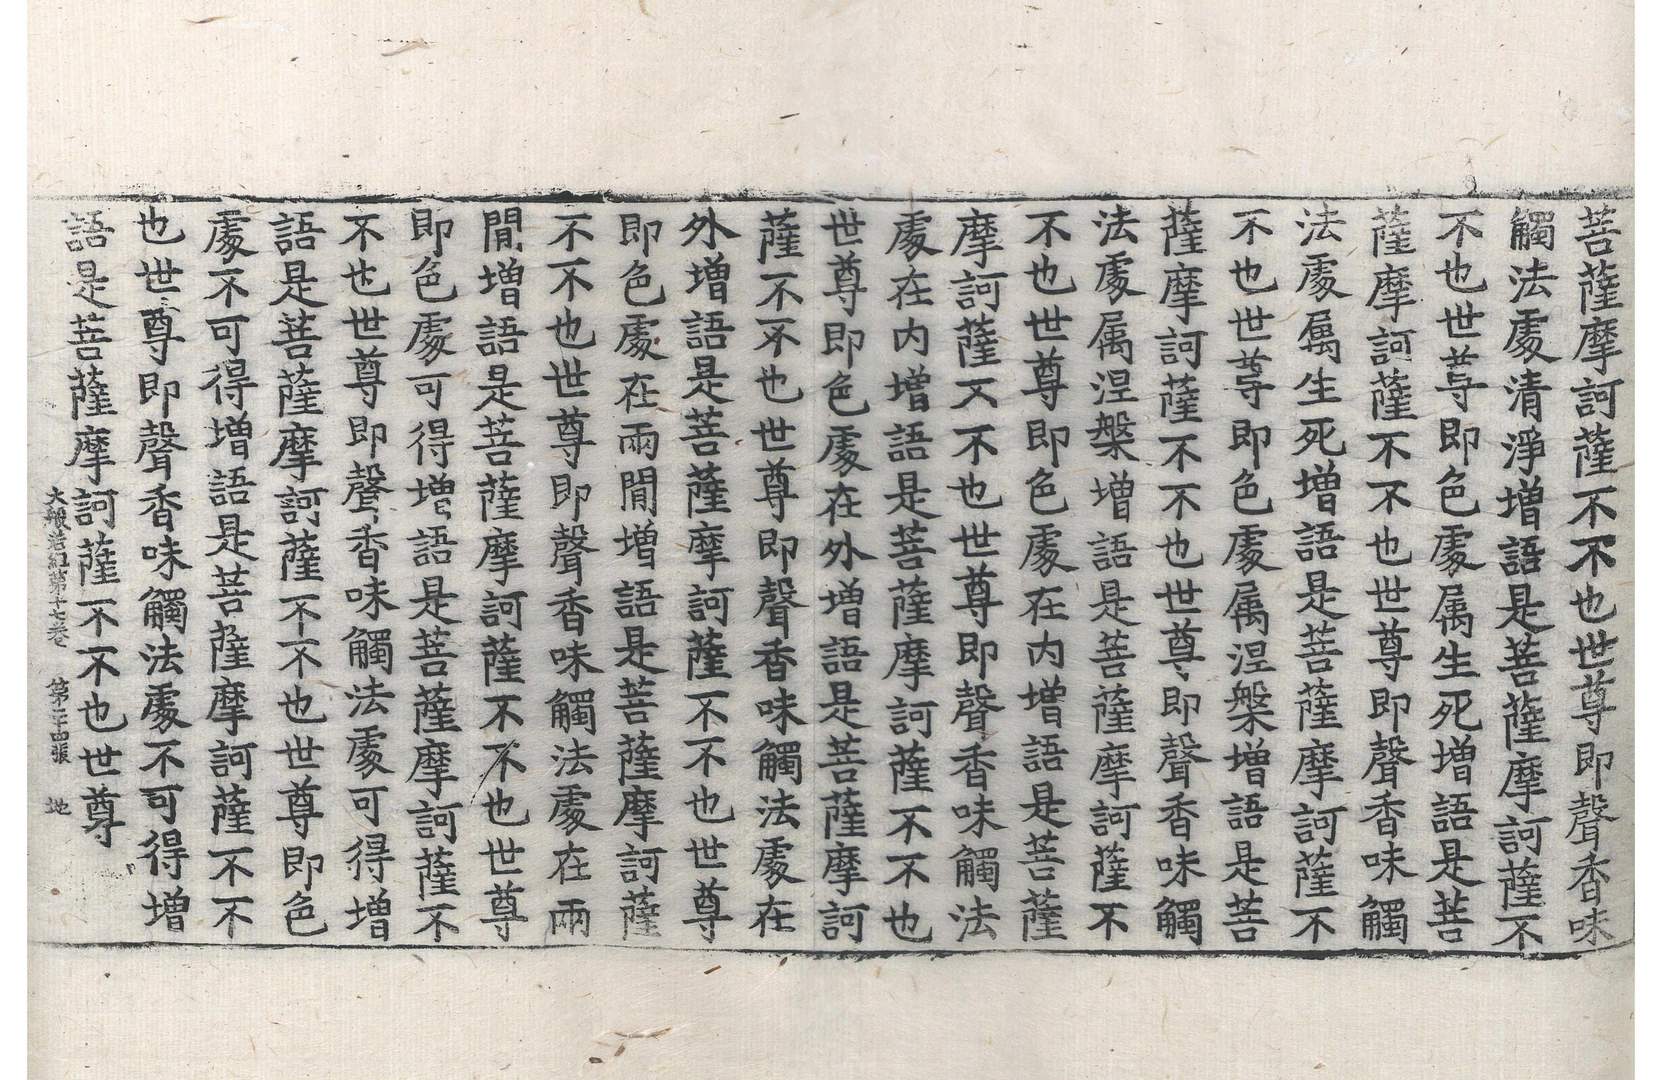 菩薩摩訶薩不不也世尊即聲香味
觸法處清淨增語是菩薩摩訶薩不
不也世尊即色處属生死增語是菩
薩摩訶薩不不也世尊即聲香味觸
法處属生死增語是菩薩摩訶薩不
不也世尊即色處属涅槃增語是菩
薩摩訶薩不不也世尊即聲香味觸
法處属涅槃增語是菩薩摩訶薩不
不也世尊即色處在内增語是菩薩
摩訶薩不不也世尊即聲香味觸法
處在内增語是菩薩摩訶薩不不也
世尊即色處在外增語是菩薩摩訶
薩不不也世尊即聲香味觸法處在
外增語是菩薩摩訶薩不不也世尊
即色處在兩閒增語是菩薩摩訶薩
不不也世尊即聲香味觸法處在兩
閒增語是菩薩摩訶薩不不也世尊
即色處可得增語是菩薩摩訶薩不
不也世尊即聲香味觸法處可得增
語是菩薩摩訶薩不不也世尊即色
處不可得增語是菩薩摩訶薩不不
也世尊即聲香味觸法處不可得增
語是菩薩摩訶薩不不也世尊
大般若經第十七卷 第二十四張 地